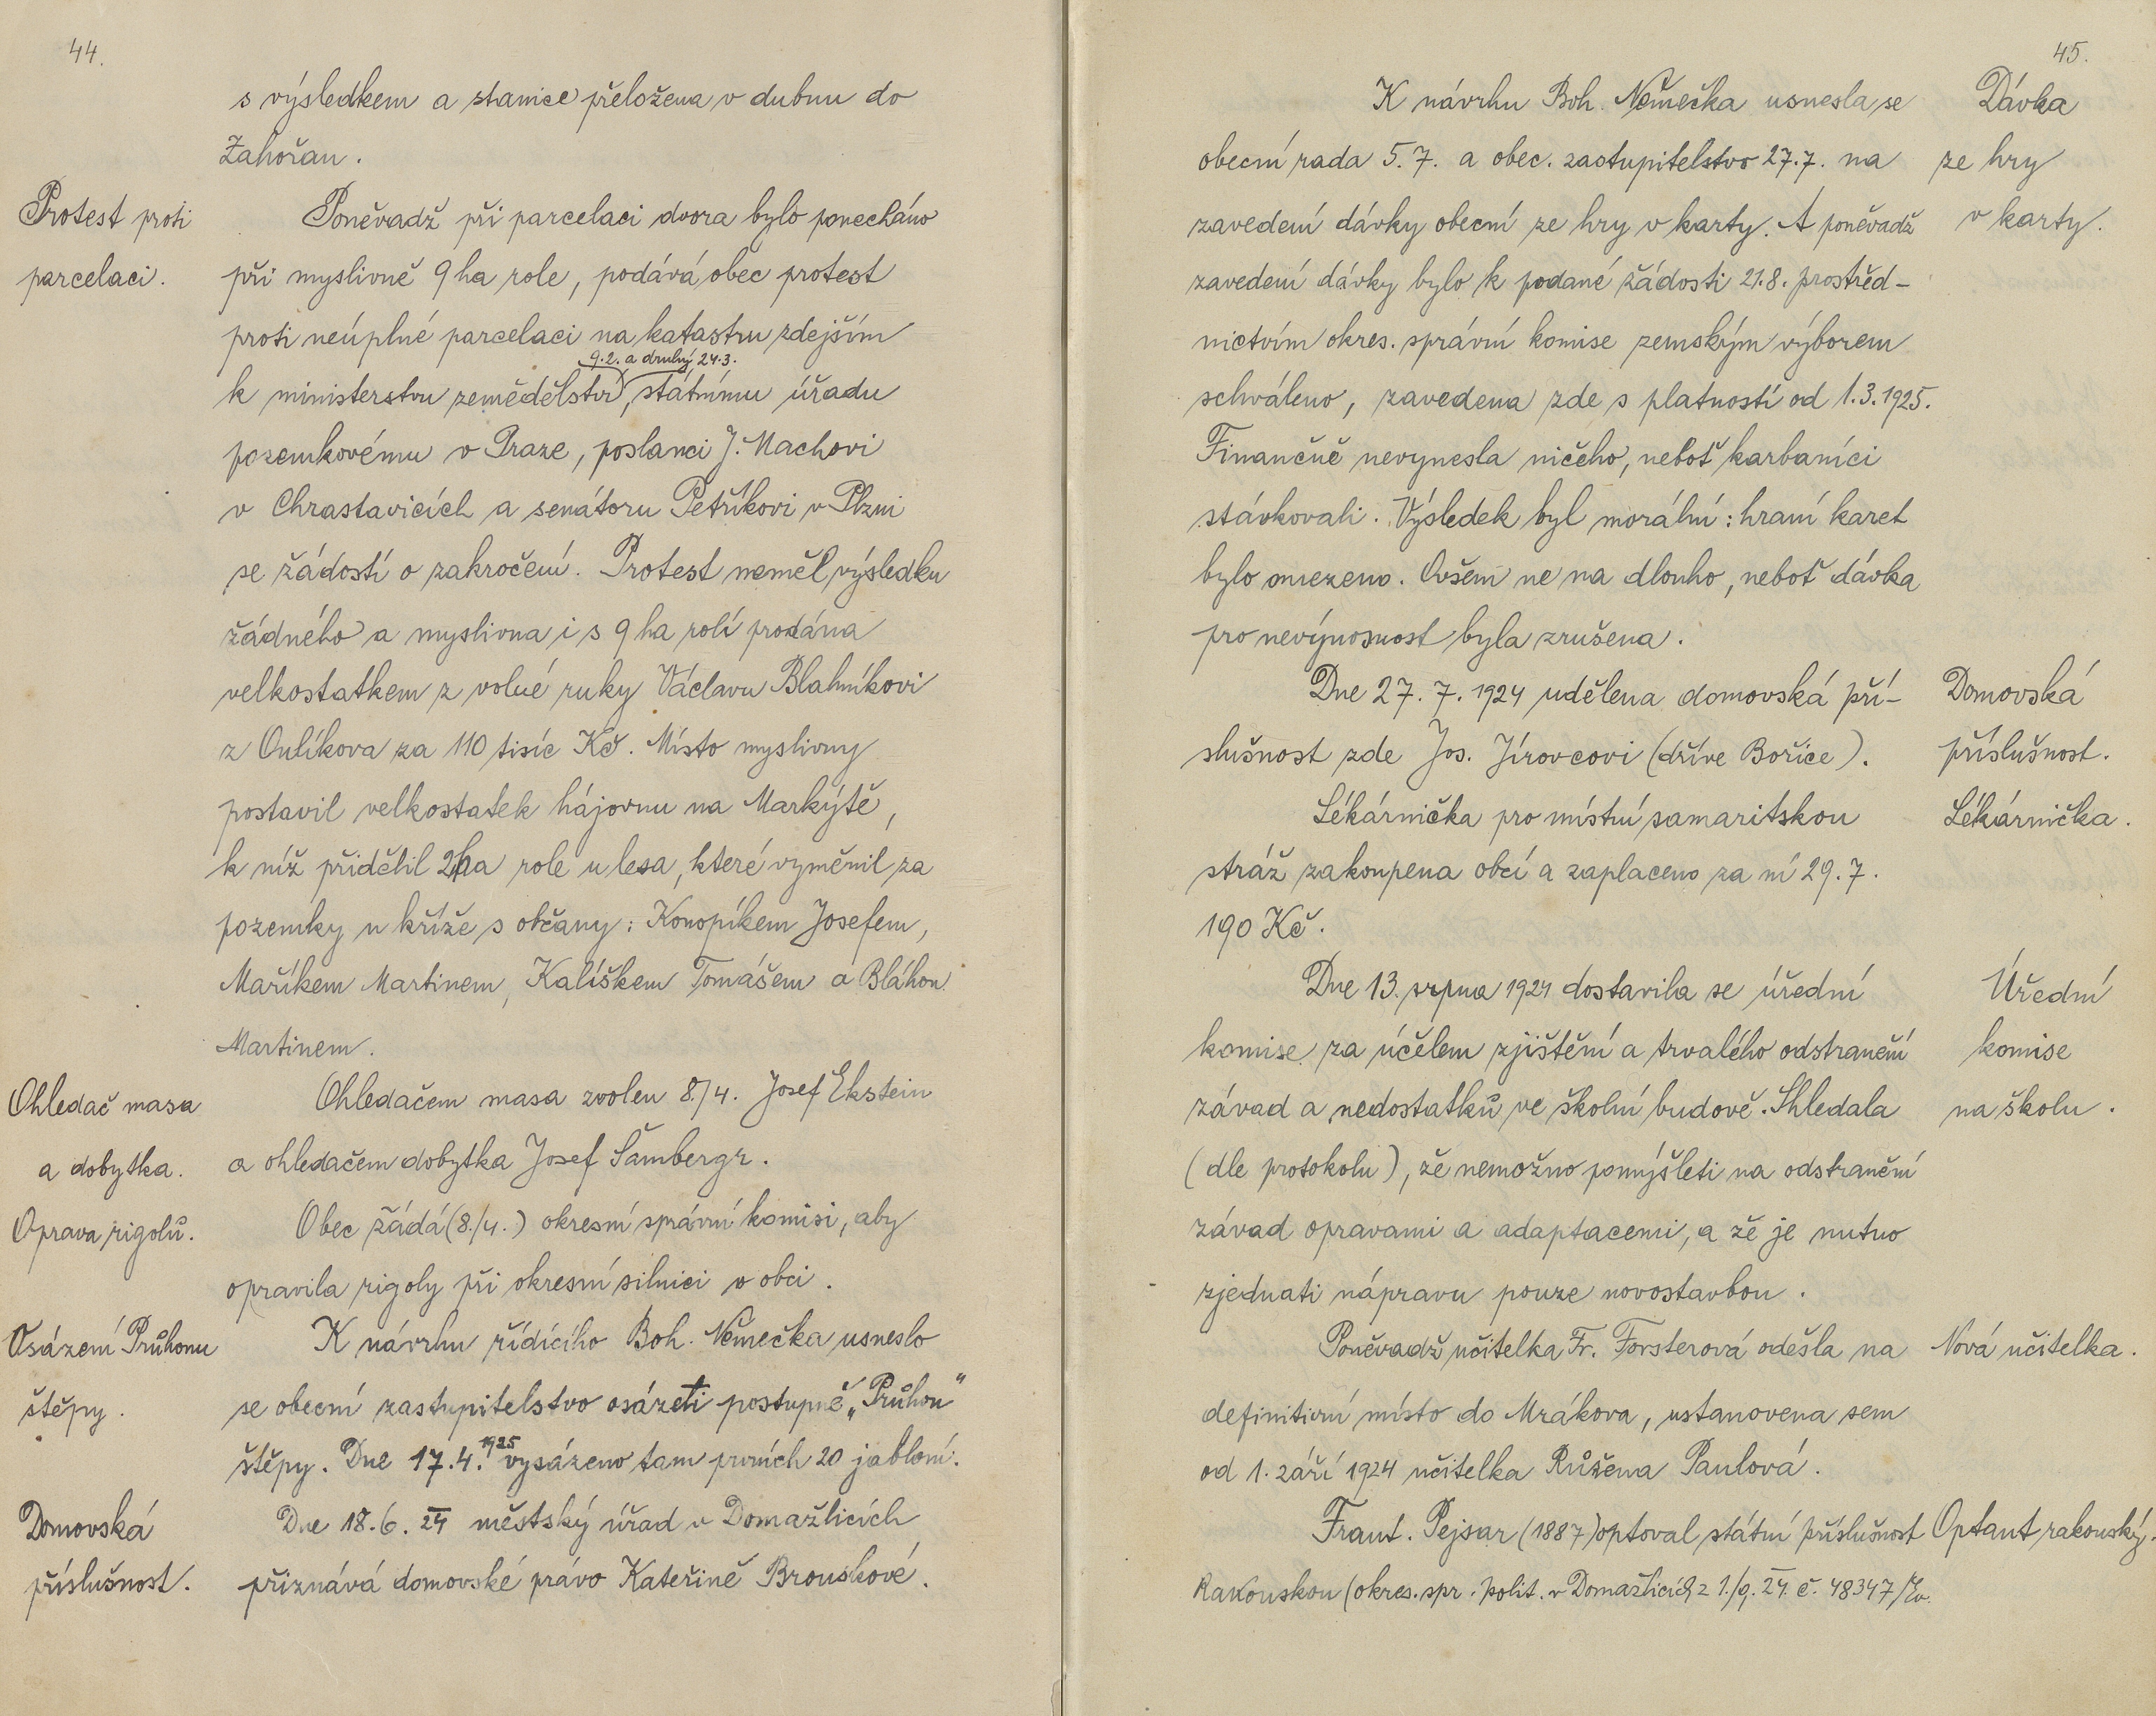 44.
s výsledkem a stanice přeložena v dubnu do
Zahořan.
Protest proti
parcelaci.
Poněvadž při parcelaci dvora bylo ponecháno
při myslivně 9 ha role, podává obec protest
proti neúplné parcelaci na katastru zdejším
9.2. a druhý 24.3.
k ministerstvu zemědělství, státnímu úřadu
pozemkovému v Praze, poslanci J. Machovi
v Chrastavicích a senátoru Petříkovi v Plzni
se žádostí o zakročení. Protest neměl výsledku
žádného a myslivna i s 9 ha rolí prodána
velkostatkem z volné ruky Václavu Blahníkovi
z Oulíkova za 110 tisíc Kč. Místo myslivny
postavil velkostatek hájovnu na Markýtě,
k níž přidělil 2ha role u lesa, které vyměnil za
pozemky u kříže s občany: Konopíkem Josefem,
Maříkem Martinem, Kalíškem Tomášem a Bláhou
Martinem.
Ohledač masa
a dobytka.
Ohledačem masa zvolen 8./4. Josef Ekstein
a ohledačem dobytka Josef Šambergr.
Oprava rigolů.
Obec žádá (8./4.) okresní správní komisi, aby
opravila rigoly při okresní silnici v obci.
Osázení Průhonu
štěpy.
K návrhu řídícího Boh. Němečka usneslo
se obecní zastupitelstvo osázeti postupně „Průhon“
štěpy. Dne 17.4. 1925 vysázeno tam prvních 20 jabloní.
Domovská
příslušnost.
Dne 18.6. 24 městský úřad v Domažlicích
přiznává domovské právo Kateřině Brouskové.
45.
K návrhu Boh. Němečka usnesla se
obecní rada 5.7. a obec. zastupitelstvo 27.7. na
zavedení dávky obecní ze hry v karty. A poněvadž
zavedení dávky bylo k podané žádosti 21.8. prostřed-
nictvím okres. správní komise zemským výborem
schváleno, zavedena zde s platností od 1.3.1925.
Finančně nevynesla ničeho, neboť karbaníci
stávkovali. Výsledek byl morální: hraní karet
bylo omezeno. Ovšem ne na dlouho, neboť dávka
pro nevýnosnost byla zrušena.
Dávka
ze hry
v karty.
Dne 27. 7. 1924 udělena domovská pří-
slušnost zde Jos. Jírovcovi (dříve Bořice).
Domovská
příslušnost.
Lékárnička pro místní samaritskou
stráž zakoupena obcí a zaplaceno za ní 29.7.
190 Kč.
Lékárnička.
Dne 13. srpna 1924 dostavila se úřední
komise za účelem zjištění a trvalého odstranění
závad a nedostatků ve školní budově. Shledala
(dle protokolu), že nemožno pomýšleti na odstranění
závad opravami a adaptacemi, a že je nutno
zjednati nápravu pouze novostavbou.
Úřední
komise
na školu.
Poněvadž učitelka Fr. Forsterová odešla na
definitivní místo do Mrákova, ustanovena sem
od 1. září 1924 učitelka Růžena Paulová.
Nová učitelka.
Frant. Pejsar (1887) optoval státní příslušnost
Rakouskou (okres. spr. polit. v Domažlicích z 1./9. 24. č. 48347/
Optant rakouský.